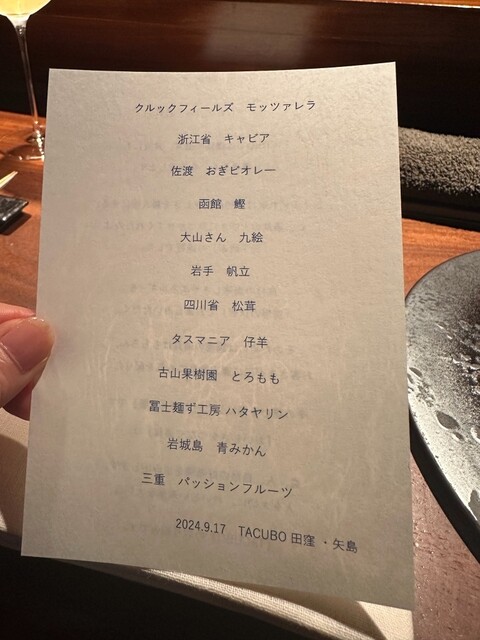 クルックフィールズ　モッツァレラ
浙江省　キャビア
佐渡　おぎビオレー
函館　鰹
大山さん　九絵
岩手　帆立
四川省　松茸
タスマニア　仔羊
古山果樹園　とろもも
冨士麺ず工房 ハタヤリン
岩城島　青みかん
三重　パッションフルーツ
2024.9.17　TACUBO 田窪 ・矢島